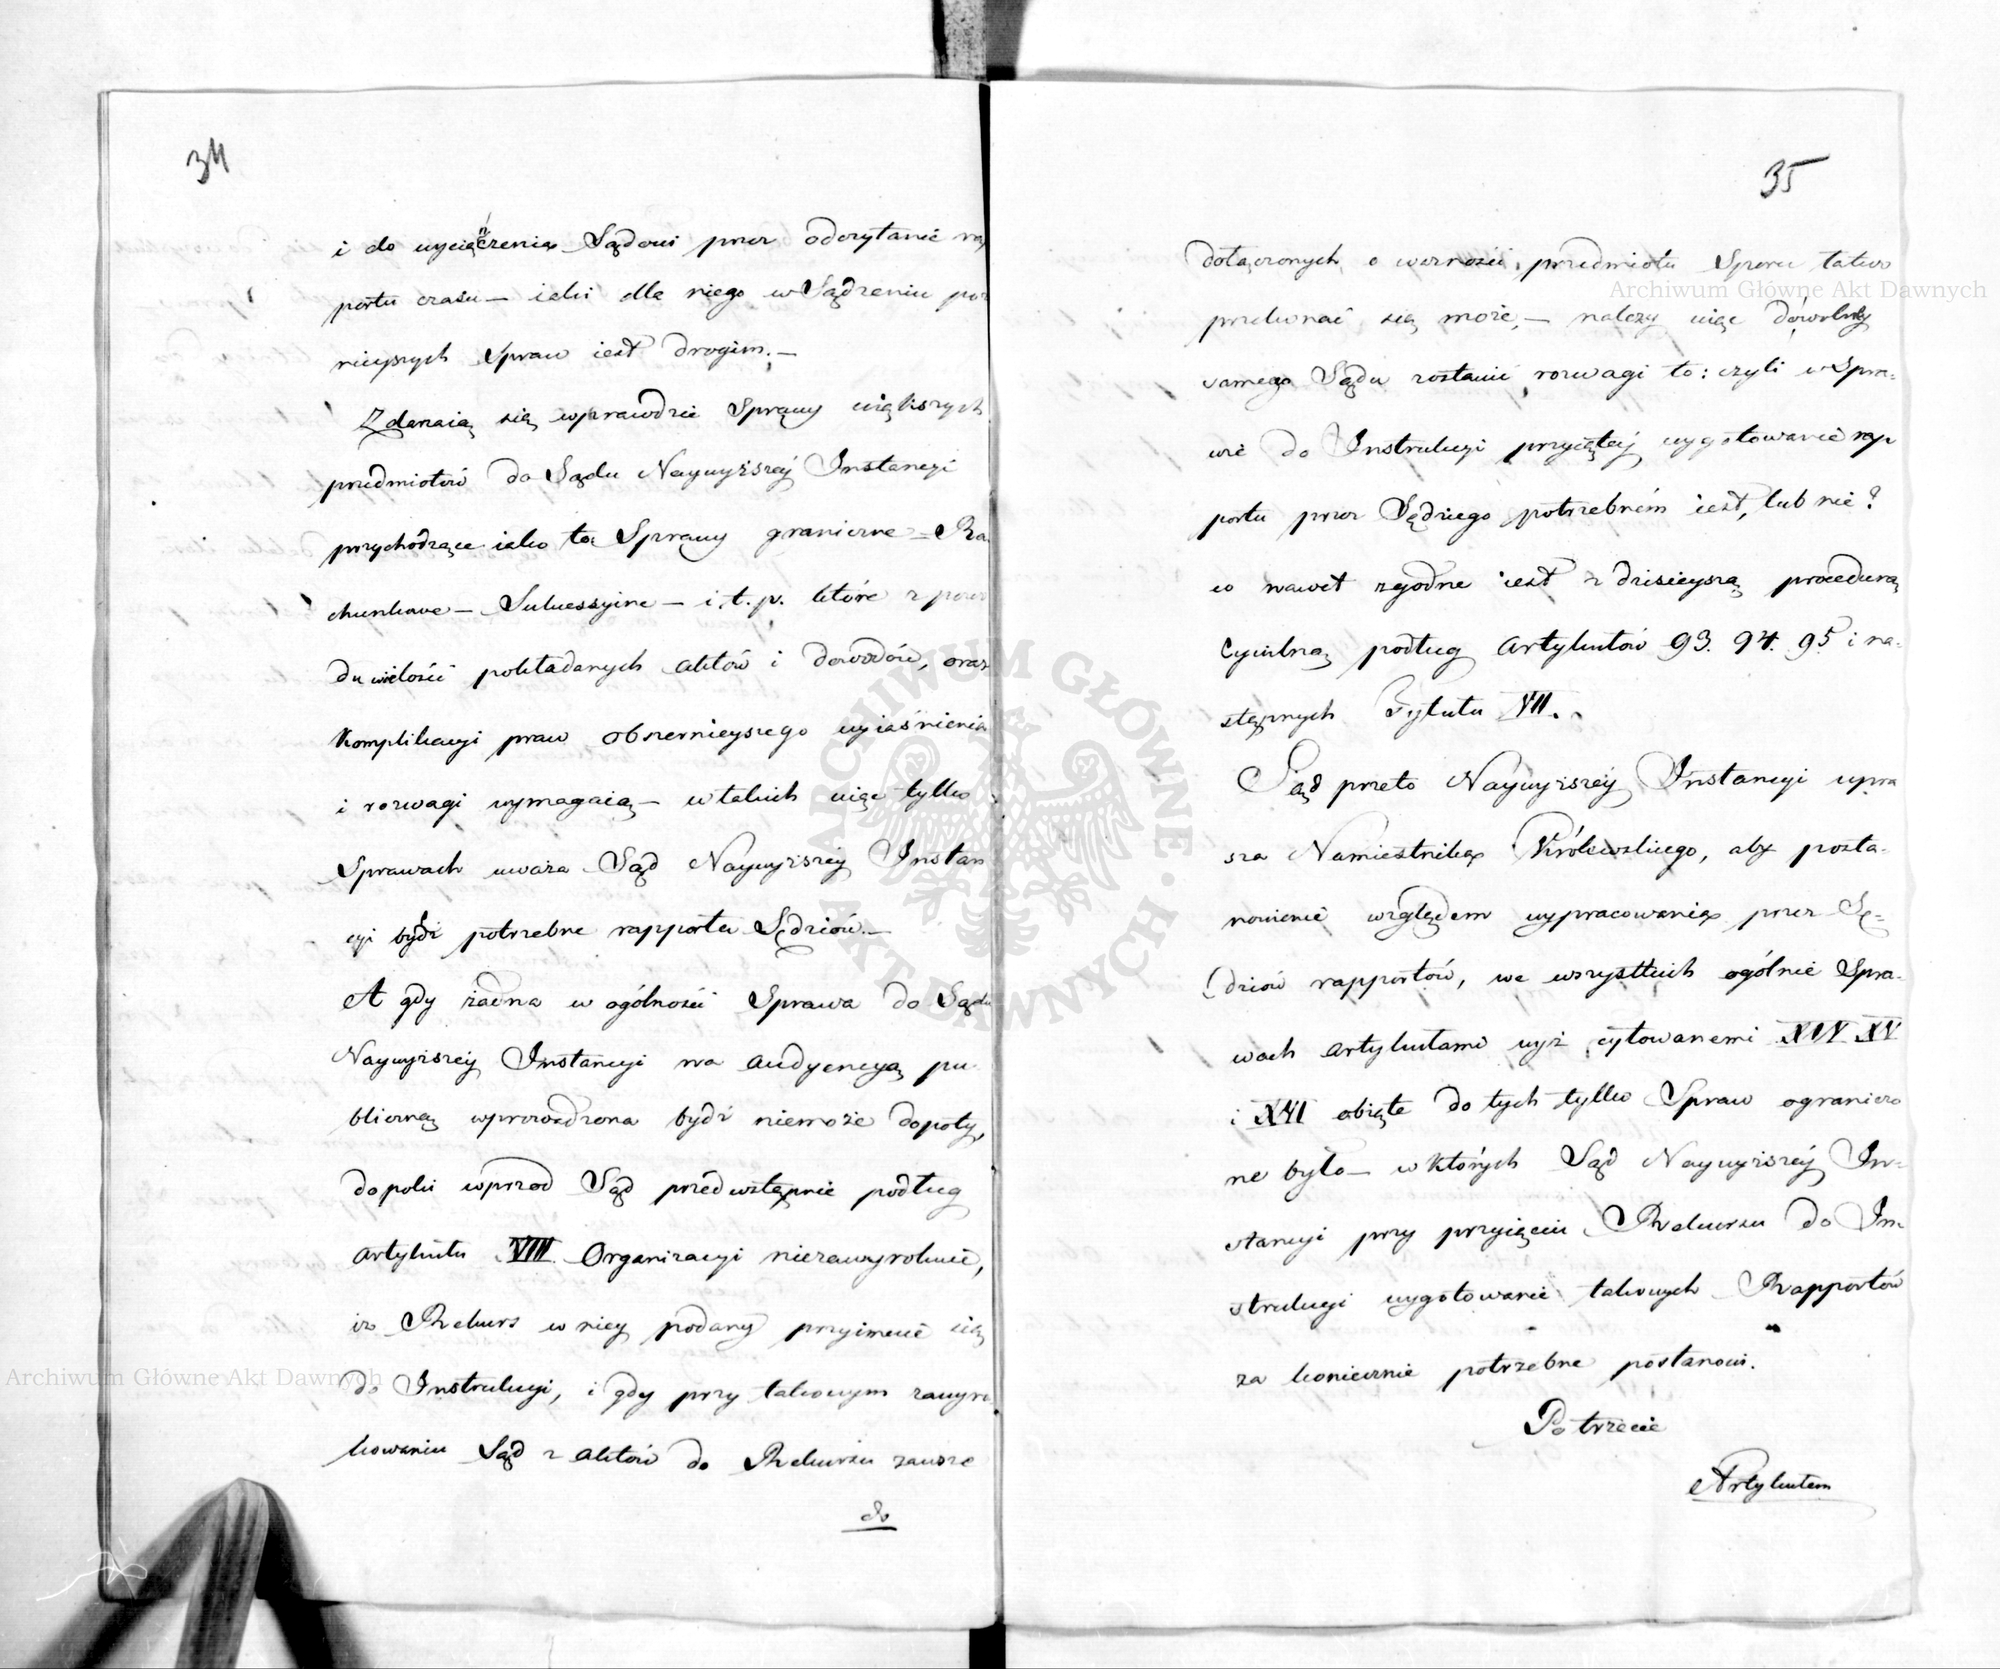 34
i do wycieńczenia Sądowi przez odczytanie rap
portu czasu — iaki dla niego w Sądzeniu póź
nieyszych Spraw iest drogim. —
Zdarzaią się wprawdzie Sprawy większych
przedmiotów do Sądu Naywyższey Instancyi
przychodzące iako to: Sprawy graniczne — Ra
chunkowe — Sukcessyine — i t. p. które z powo
du wielości pokładanych aktów i dowodów, oraz
Komplikacyi praw obszernieyszego wyiaśnienia
i rozwagi wymagaią — w takich więc tylko
Sprawach uważa Sąd Naywyższey Instan
cyi bydź potrzebne rapporta Sędziów. —
A gdy żadna w ogólności Sprawa do Sądu
Naywyższey Instancyi na audyencyą pu
bliczną wprowadzona bydź niemoże dopóty,
dopóki wprzód Sąd przedwstępnie podług
artykułu VIII Organizacyi niezawyrokuie,
iż Rekurs w niey podany przyimuie się
do Instrukcyi, i gdy przy takowym zawyro
kowaniu Sąd z aktów do Rekursu zawsze
do
35
dołączonych o ważności przedmiotu Sporu łatwo
Archiwum Główne Akt Dawnych
przekonać się może, — należy więc dowolney
samego Sądu zostawić rozwagi to: czyli w Spra-
wie do Instrukcyi przyiętey wygotowanie rap
portu przez Sędziego potrzebném iest, lub nie?
co nawet zgodne iest z dzisieyszą procedurą
Cywilną podług artykułów 93. 94. 95 i na-
stępnych Tytułu VII.
Sąd przeto Naywyższey Instancyi upra
sza Namiestnika Królewskiego, aby posta-
nowienie względem wypracowania przez Sę-
dziów rapportów, we wszystkich ogólnie Spra-
wach artykułami wyż cytowanemi XIV XV
i XVI obięte do tych tylko Spraw ogranicza
ne było — w których Sąd Naywyższey In-
stancyi przy przyięciu Rekursu do In-
strukcyi wygotowanie takowych Rapportów
za koniecznie potrzebne postanowi.
Potrzecie
Artykułem
ARCHIWUM GŁÓWNE AKT DAWNYCH
Archiwum Główne Akt Dawnych